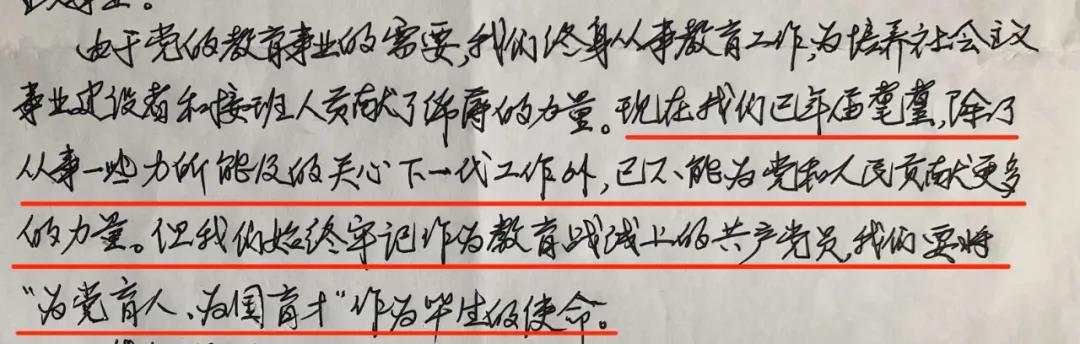 由于党的教育事业的需要,我们终身从事教育工作,为培养社会主义
事业建设者和接班人贡献了绵薄的力量。现在我们已年届耄耋,除了
从事一些力所能及的关心下一代工作外,已不能为党和人民贡献更多
的力量。但我们始终牢记作为教育战线上的共产党员,我们要将
“为党育人、为国育才”作为毕生的使命。